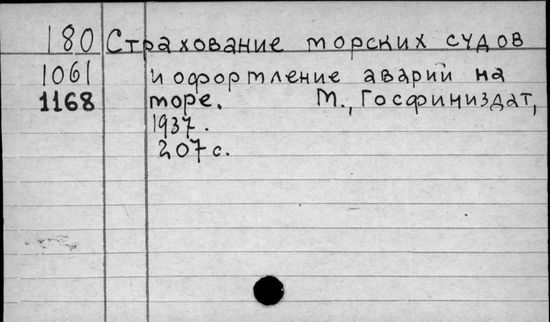 180 Страхование морских судов
1061 и оформление аварий на
1168 море. М., Госфиниздат,
1937.
207 с.